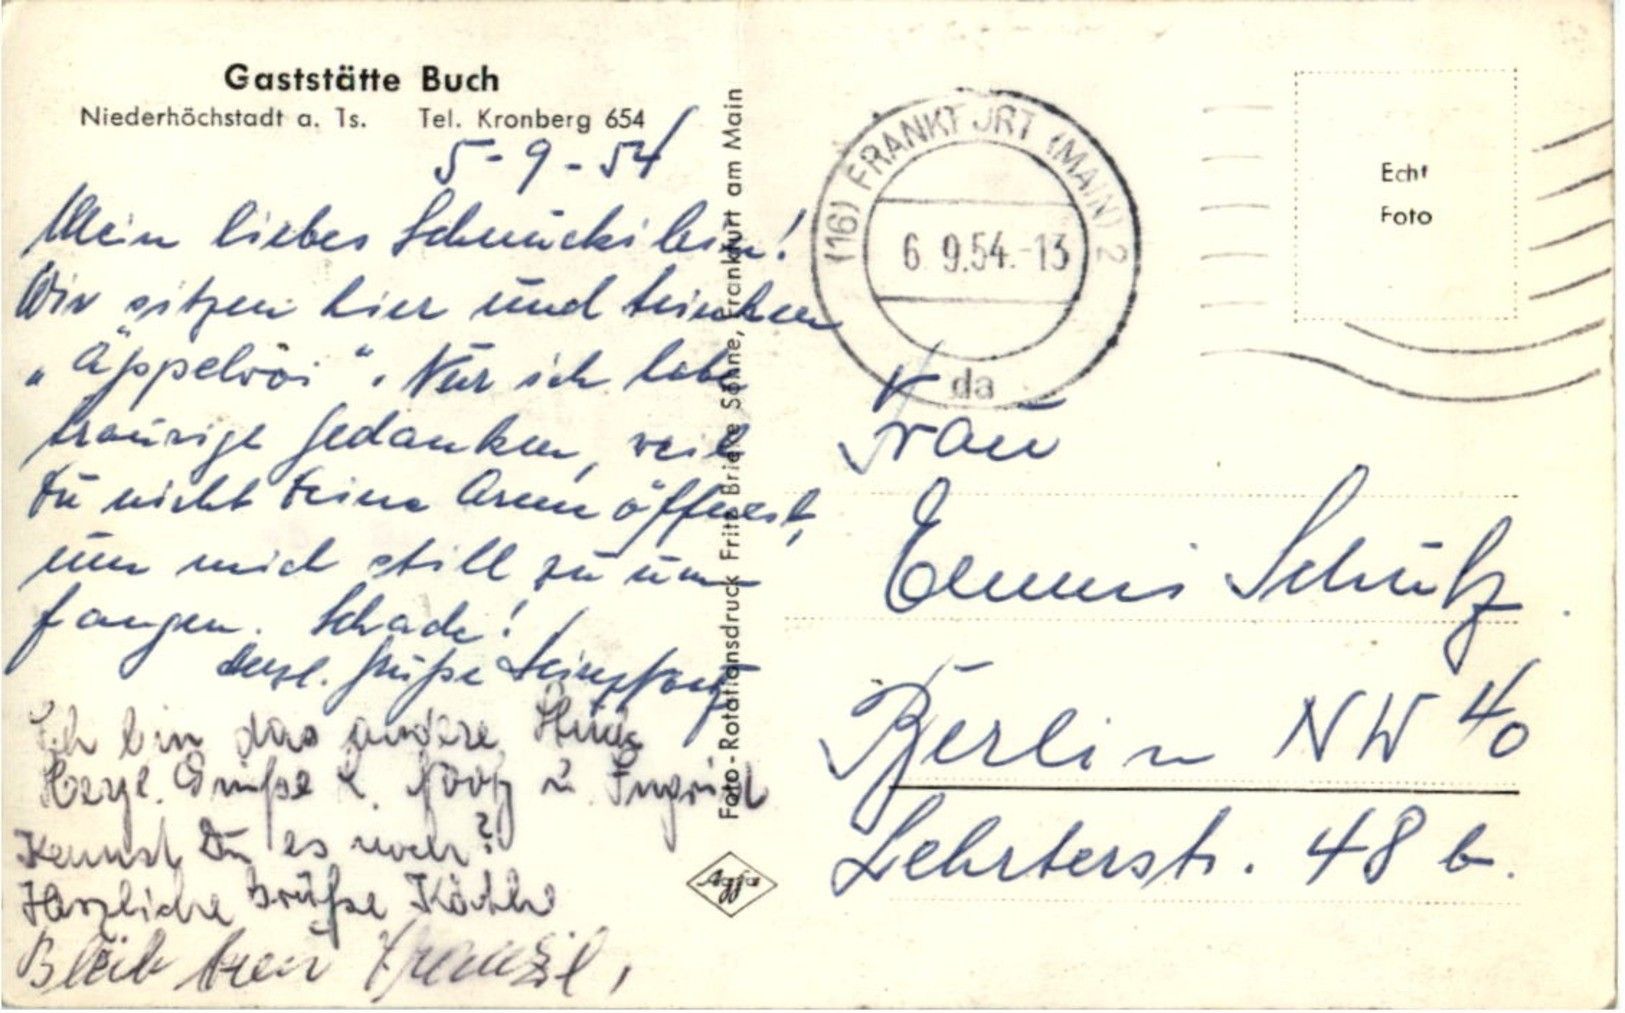 Gaststätte Buch
Niederhöchstadt a. Ts. Tel. Kronberg 654
5-9-54
Mein liebes Schnuckilein!
Wir sitzen hier und trinken
„Äppelwoi“. Nur ich habe
traurige Gedanken, weil
Du nicht Deine Arme öffnest,
um mich still zu um-
fangen. Schade!
Herzl. Grüße Dein
Ich bin das andere
Herzl. Grüße u. Ingrid
Kennst Du es noch?
Herzliche Grüße Käthe
Bleib treu
Foto-Rotationsdruck Fritz Brieke Söhne, Frankfurt am Main
Agfa
(16) FRANKFURT (MAIN) 2
6. 9.54.-13
da
Echt
Foto
Frau
Schütz
Berlin NW 40
Lehrterstr. 48 b.